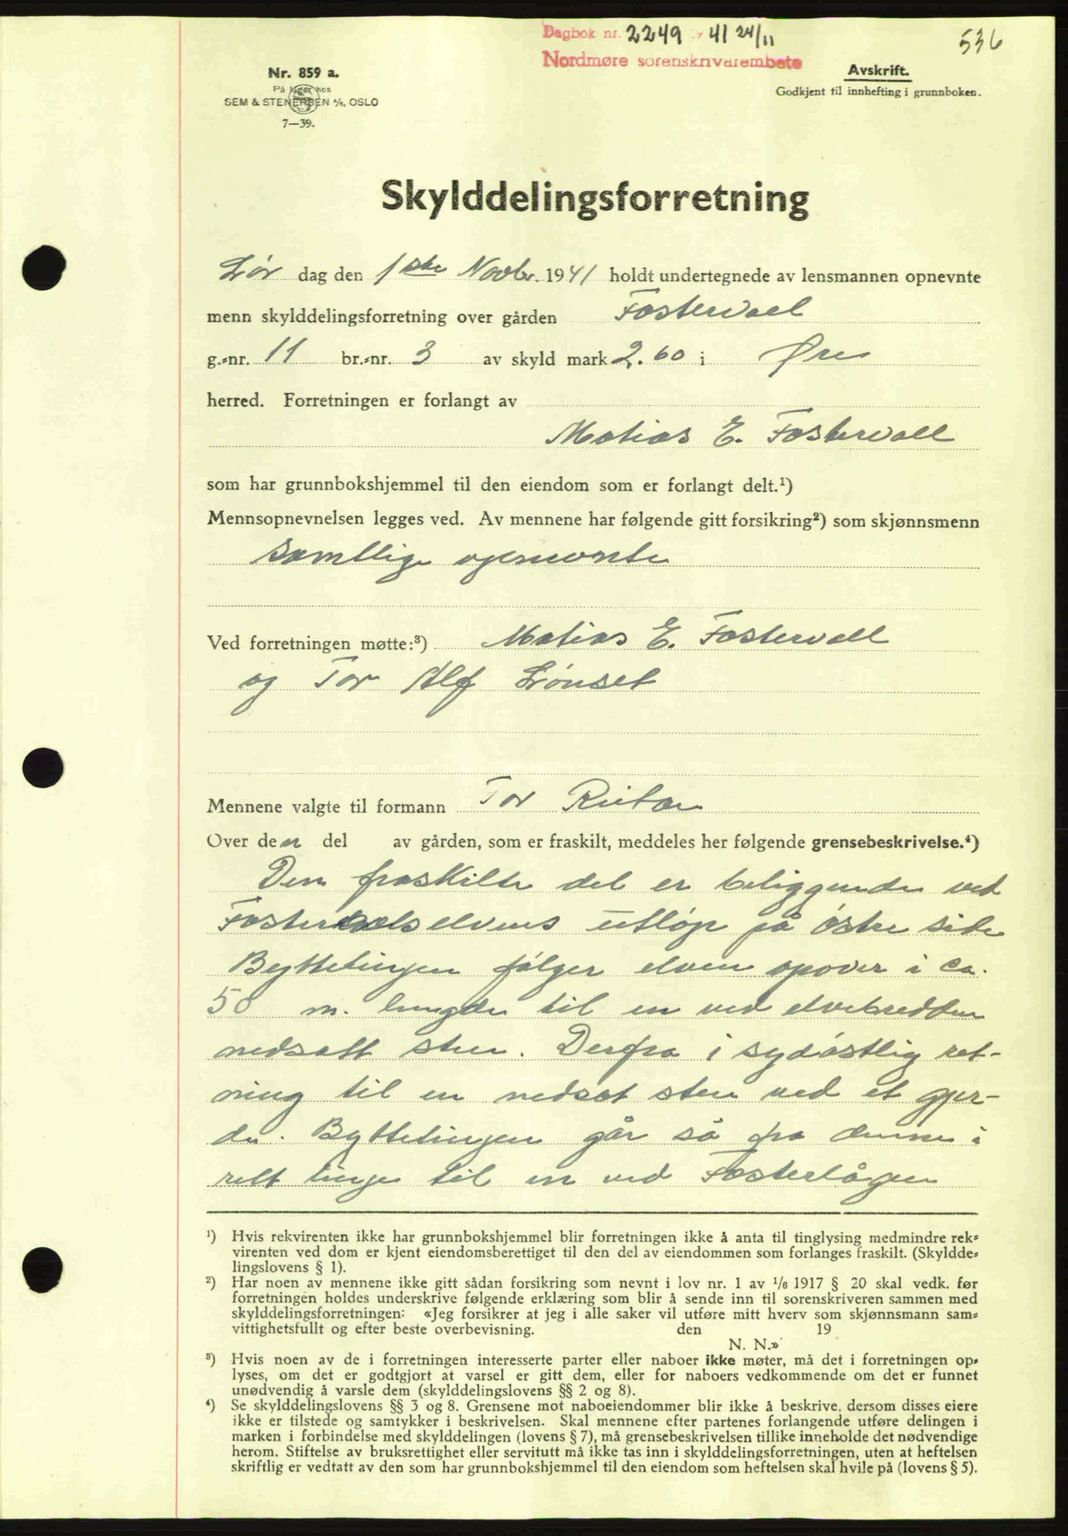 Dagbok nr. 2249 - 41 24/11
Nordmøre sorenskriverembete
536
Nr. 859 a.
På lager hos
SEM & STENERSEN A/S, OSLO
7—39.
Avskrift.
Godkjent til innhefting i grunnboken.
Skylddelingsforretning
Lør dag den 1ste Novbr. 1941 holdt undertegnede av lensmannen opnevnte
menn skylddelingsforretning over gården Fostervoll
g.-nr. 11 br.-nr. 3 av skyld mark 2.60 i Øre
herred. Forretningen er forlangt av
Matias E. Fostervoll
som har grunnbokshjemmel til den eiendom som er forlangt delt.¹)
Mennsopnevnelsen legges ved. Av mennene har følgende gitt forsikring²) som skjønnsmenn
samtlige opnevnte
Ved forretningen møtte:³) Matias E. Fostervoll
og Tor Alf Lønset
Mennene valgte til formann Tor
Over den del av gården, som er fraskilt, meddeles her følgende grensebeskrivelse.⁴)
Den fraskilte del er beliggende ved
elvens utløp på østre side
Byttelinjen følger elven opover i ca.
50 m. lengde til en ved elvebredden
nedsatt sten. Derfra i sydøstlig ret-
ning til en nedsat sten ved et gjer-
de. Byttelinjen går så fra denne i
rett linje til en ved Fosterlågen
¹) Hvis rekvirenten ikke har grunnbokshjemmel blir forretningen ikke å anta til tinglysing medmindre rek-
virenten ved dom er kjent eiendomsberettiget til den del av eiendommen som forlanges fraskilt. (Skyldde-
lingslovens § 1).
²) Har noen av mennene ikke gitt sådan forsikring som nevnt i lov nr. 1 av 1/6 1917 § 20 skal vedk. før
forretningen holdes underskrive følgende erklæring som blir å sende inn til sorenskriveren sammen med
skylddelingsforretningen: «Jeg forsikrer at jeg i alle saker vil utføre mitt hverv som skjønnsmann sam-
vittighetsfullt og efter beste overbevisning. den 19
N. N.»
³) Hvis noen av de i forretningen interesserte parter eller naboer ikke møter, må det i forretningen op-
lyses, om det er godtgjort at varsel er gitt dem, eller for naboers vedkommende om det er funnet
unødvendig å varsle dem (skylddelingslovens §§ 2 og 8).
⁴) Se skylddelingslovens §§ 3 og 8. Grensene mot naboeiendommer blir ikke å beskrive, dersom disses eiere
ikke er tilstede og samtykker i beskrivelsen. Skal mennene efter partenes forlangende utføre delingen i
marken i forbindelse med skylddelingen (lovens § 7), må grensebeskrivelsen tillike inneholde det nødvendige
herom. Stiftelse av bruksrettighet eller servitutt må ikke tas inn i skylddelingsforretningen, uten at heftelsen
skriftlig er vedtatt av den som har grunnbokshjemmel til den eiendom som heftelsen skal hvile på (lovens § 5).